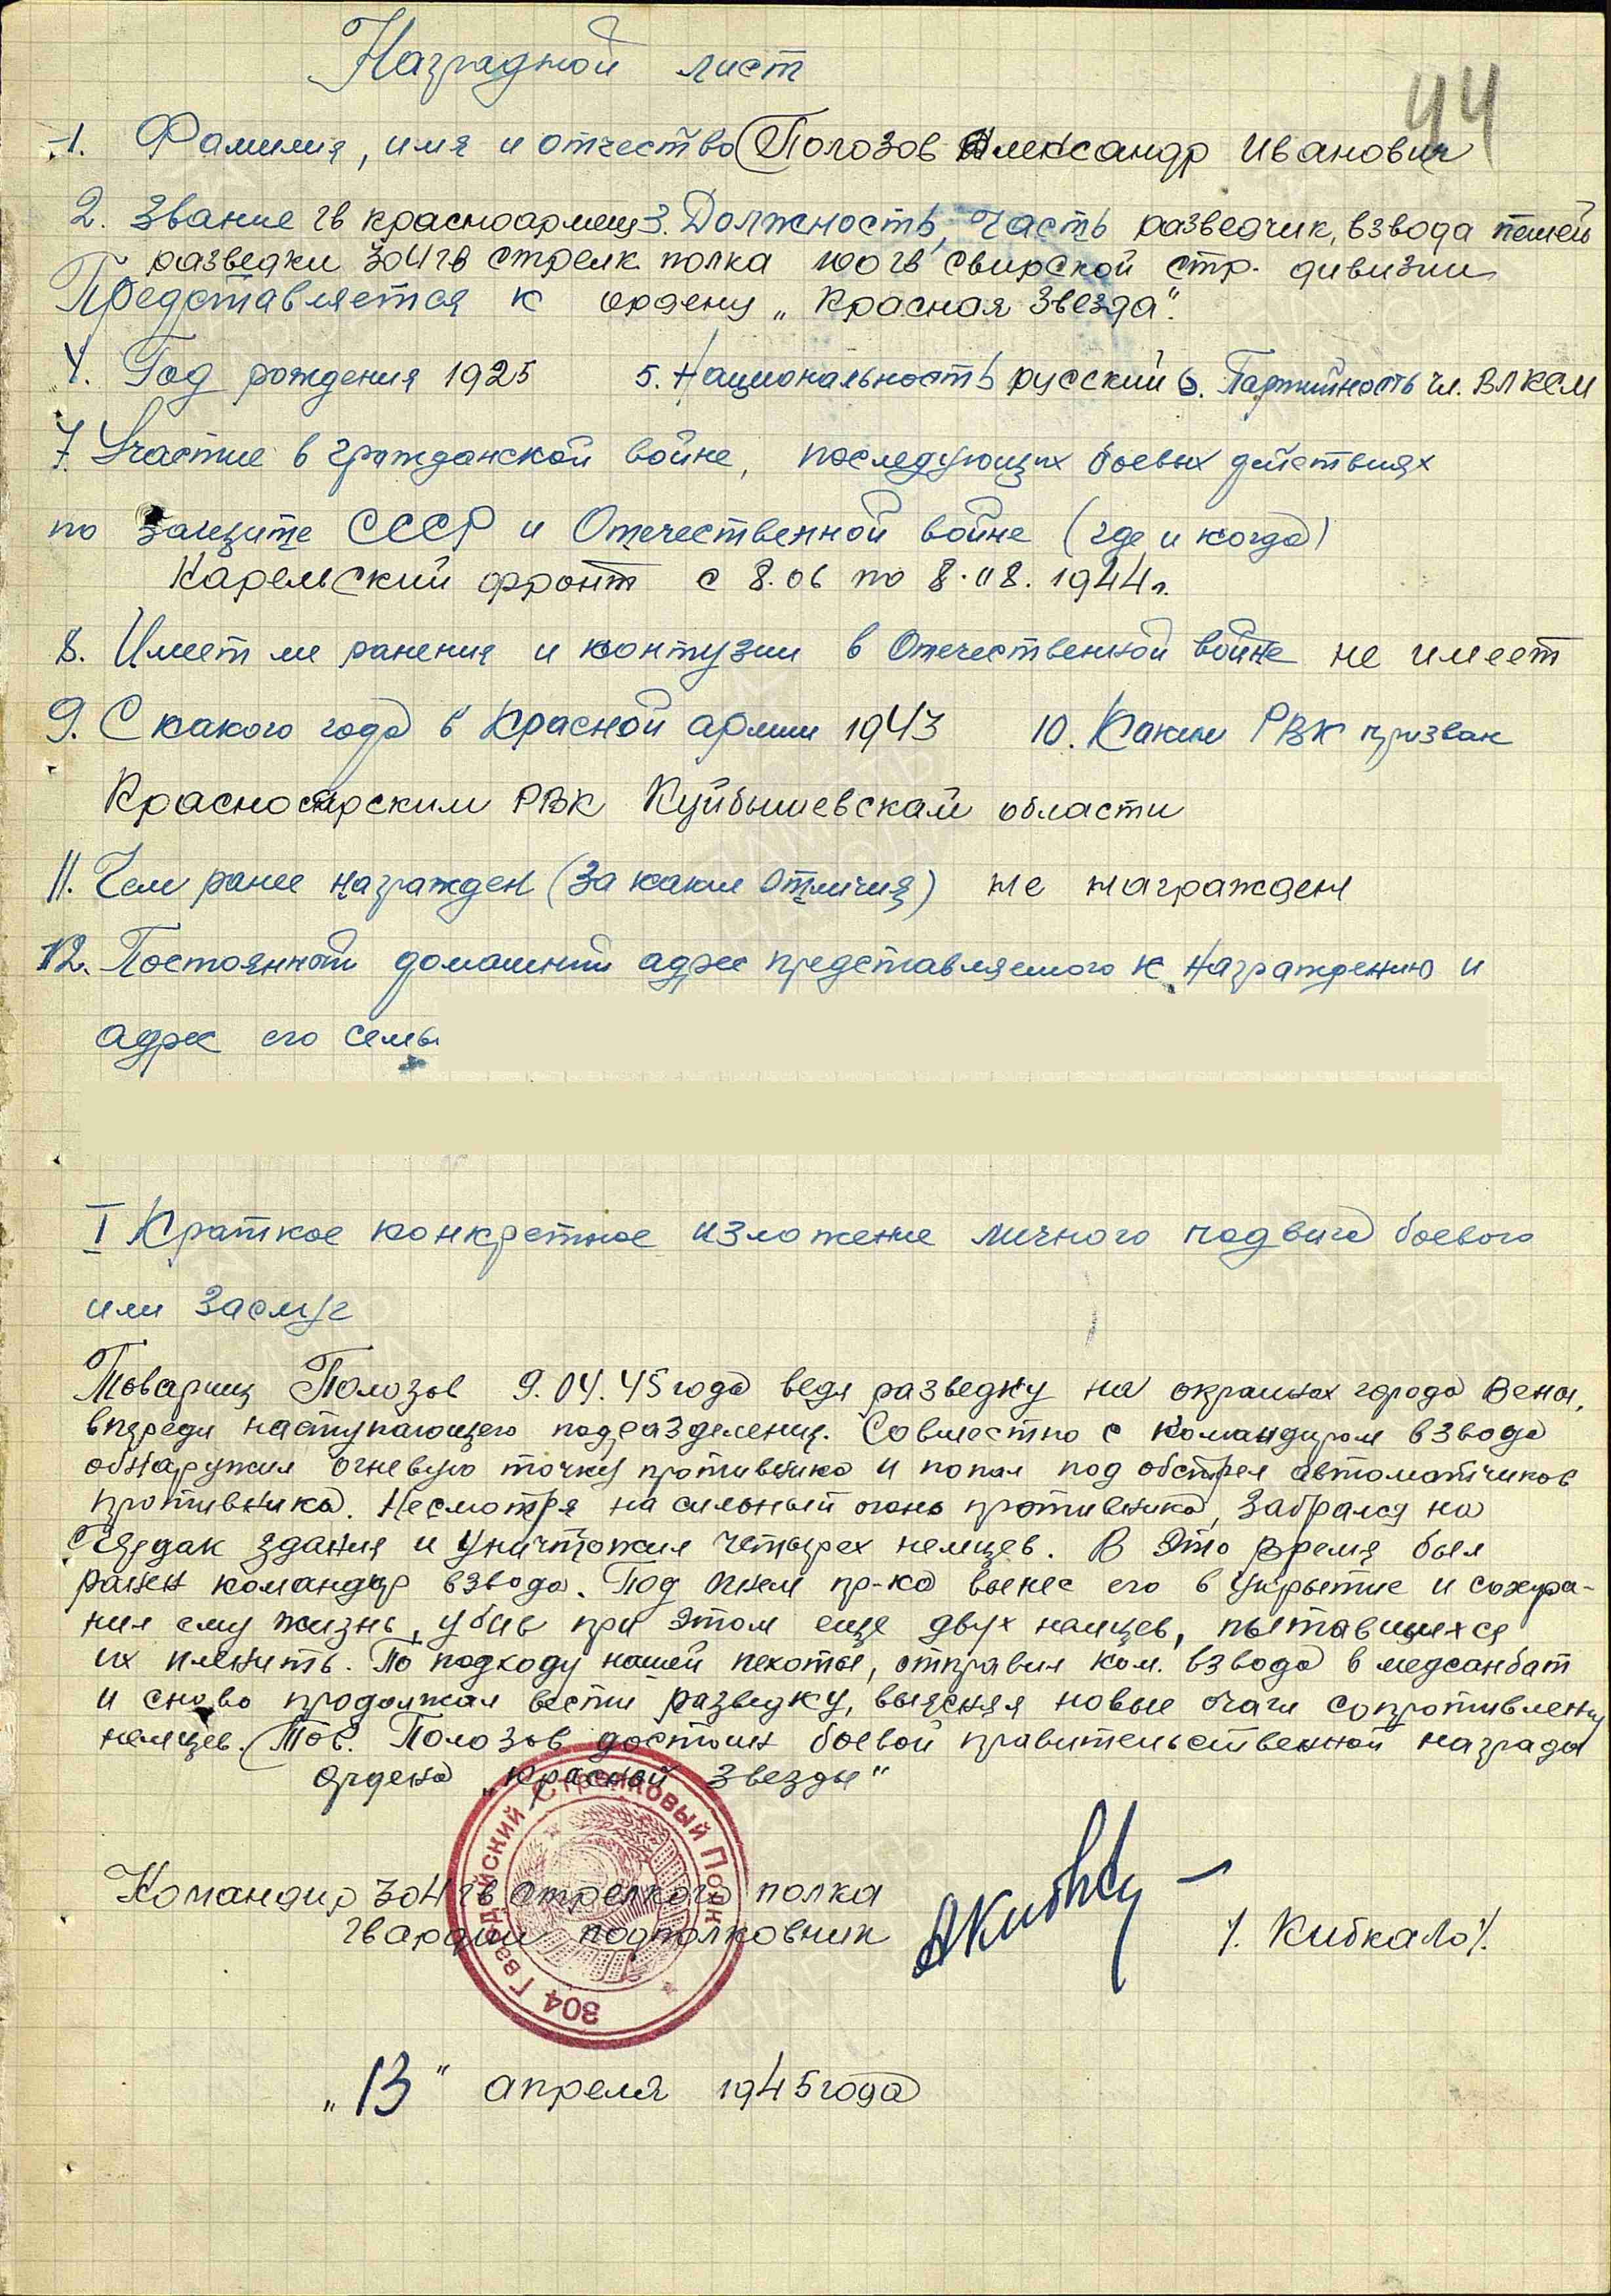 44
Наградной лист
1. Фамилия, имя и отчество Полозов Александр Иванович
2. Звание гв красноармеец 3. Должность, часть разведчик, взвода пешей
разведки 304 гв стрелк. полка 100 гв Свирской стр. дивизии
Представляется к ордену „Красная Звезда".
4. Год рождения 1925 5. Национальность русский 6. Партийность чл. ВЛКСМ
7. Участие в гражданской войне, последующих боевых действиях
по защите СССР и Отечественной войне (где и когда)
Карельский фронт с 8.06 по 8.08.1944 г.
8. Имеет ли ранения и контузии в Отечественной войне не имеет
9. С какого года в Красной армии 1943 10. Каким РВК призван
Красноярским РВК Куйбышевской области
11. Чем ранее награжден (за какие отличия) не награжден
12. Постоянный домашний адрес представляемого к награждению и
адрес его семьи
I Краткое конкретное изложение личного подвига боевого
или заслуг
Товарищ Полозов 9.04.45 года ведя разведку на окраинах города Вены,
впереди наступающего подразделения. Совместно с командиром взвода
обнаружил огневую точку противника и попал под обстрел автоматчиков
противника. Несмотря на сильный огонь противника, забрался на
чердак здания и уничтожил четырех немцев. В это время был
ранен командир взвода. Под огнем пр-ка вынес его в укрытие и сохра-
нил ему жизнь, убив при этом еще двух немцев, пытавшихся
их пленить. По подходу нашей пехоты, отправил ком. взвода в медсанбат
и снова продолжал вести разведку, выясняя новые очаги сопротивления
немцев. Тов. Полозов достоин боевой правительственной награды
ордена „Красной Звезды"
304 Гвардейский Стрелковый Полк
Командир 304 гв стрелкого полка
гвардии подполковник /. Кибкало /.
„13" апреля 1945 года